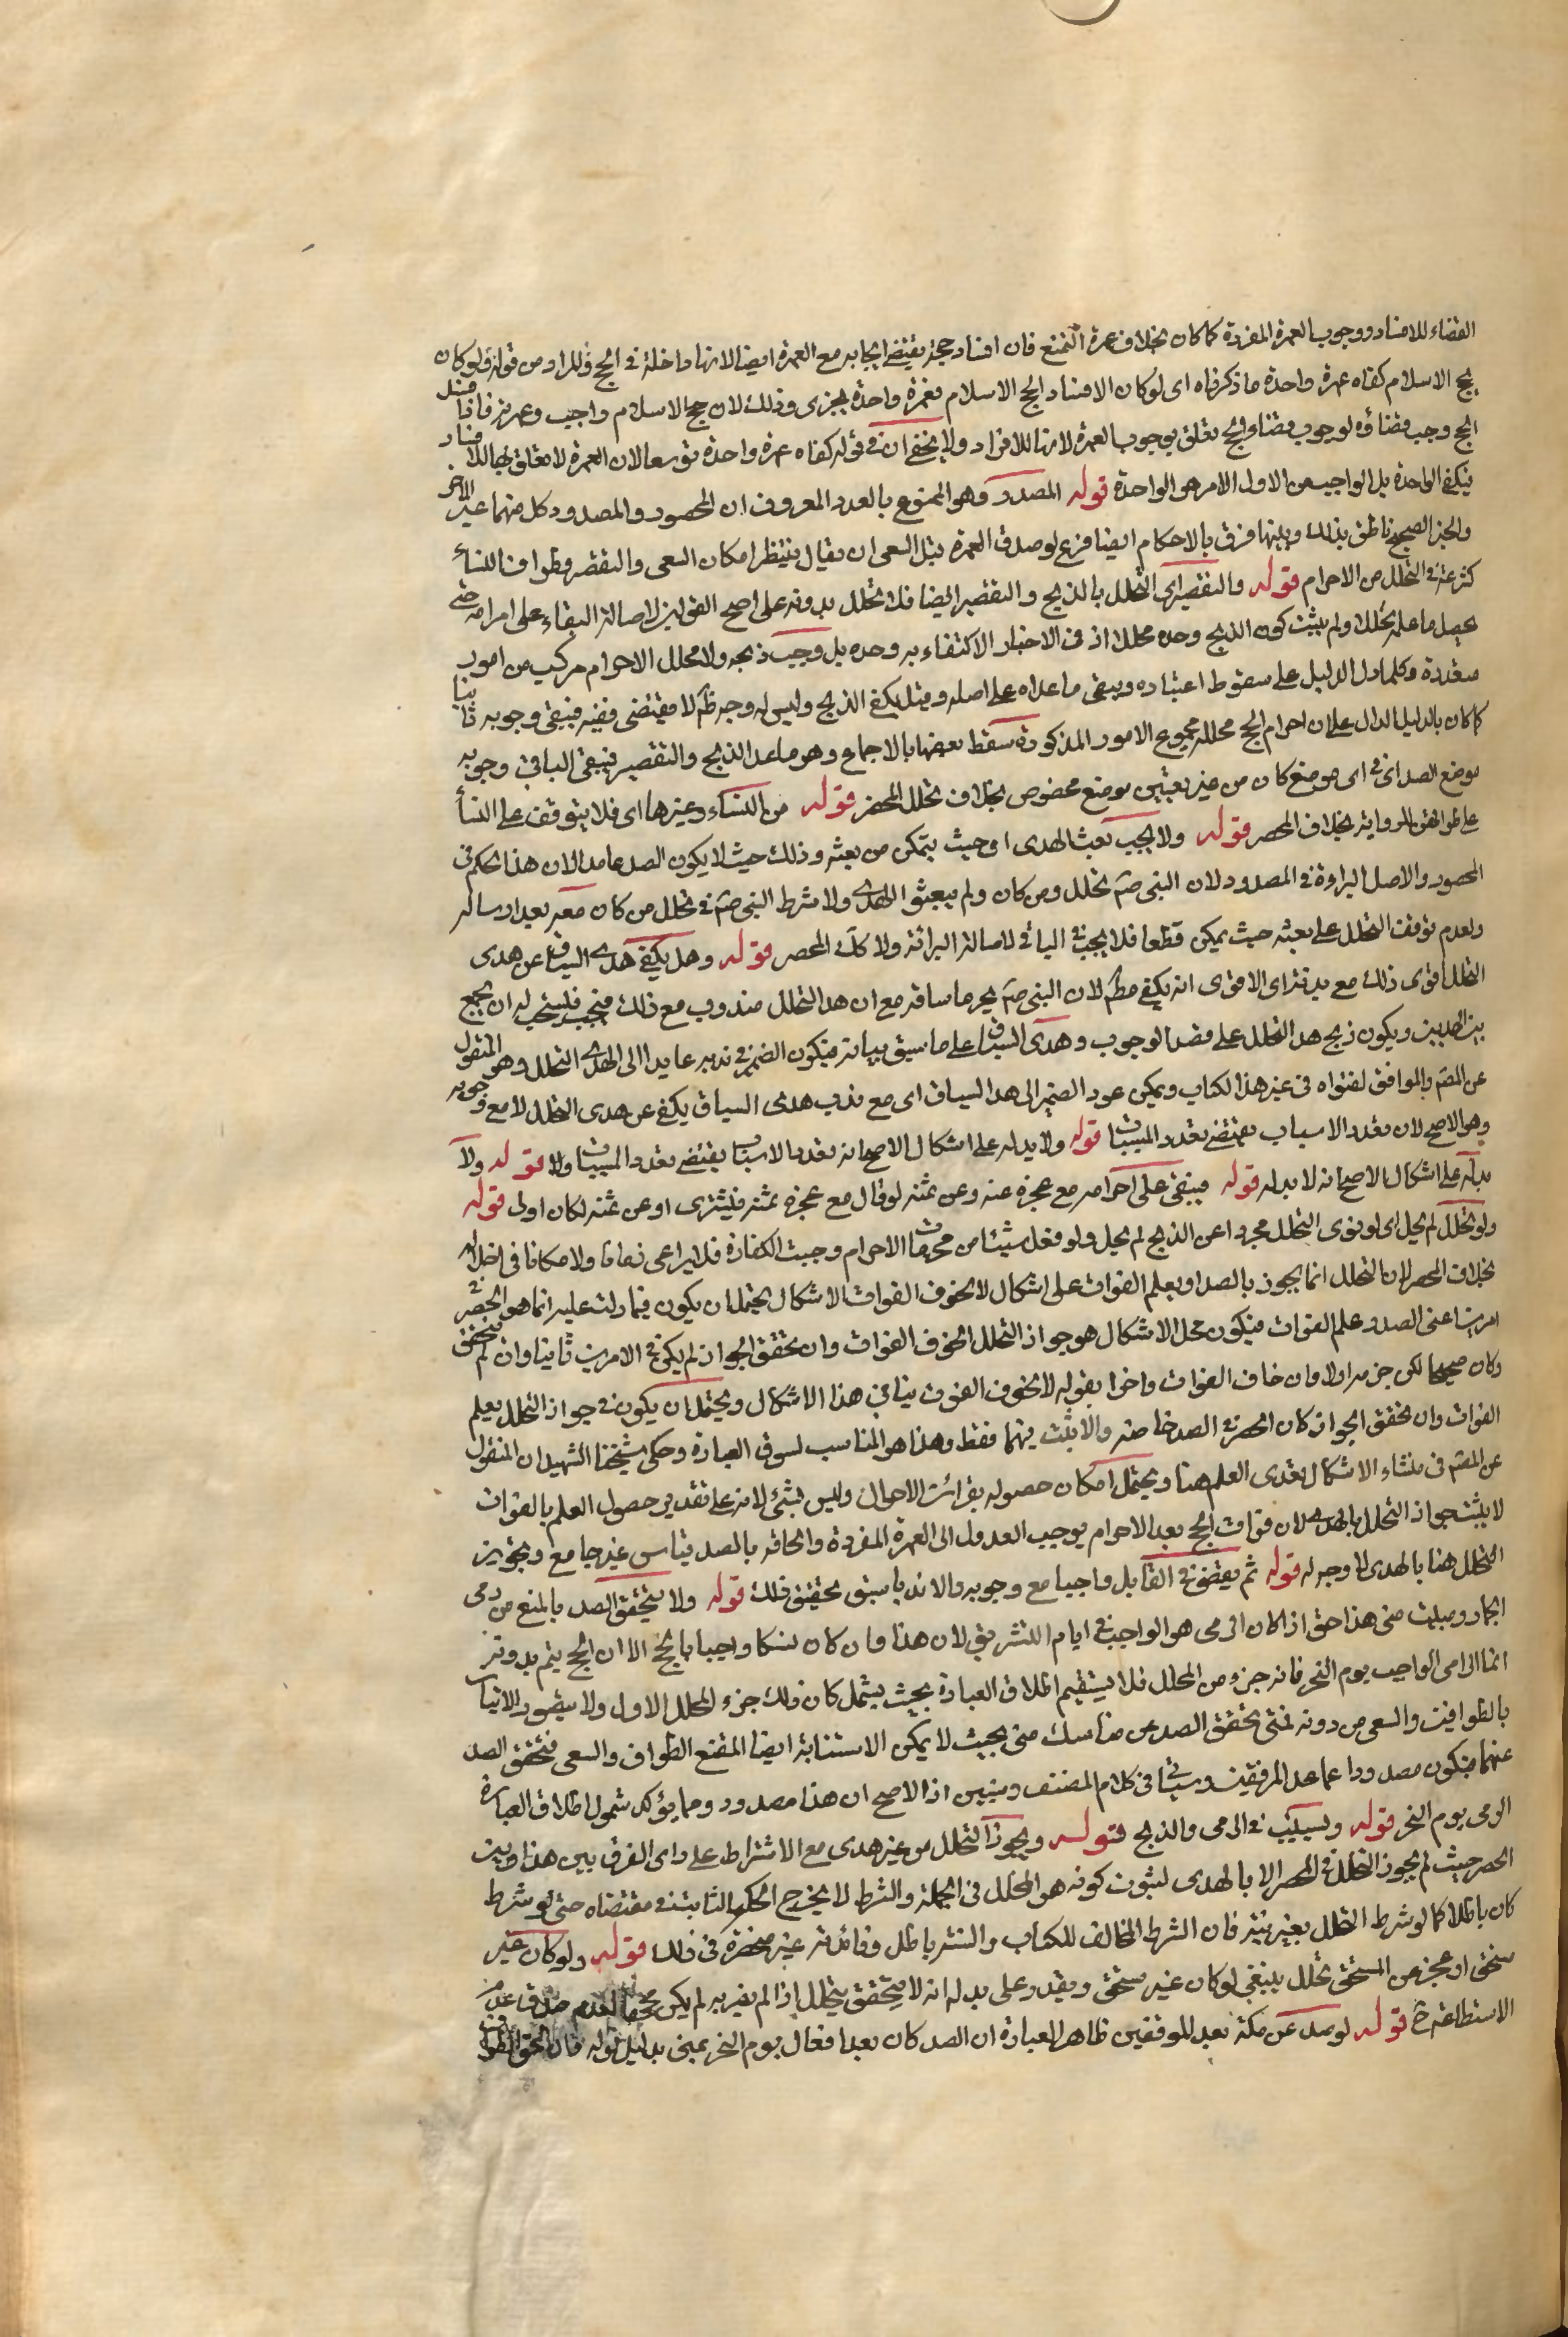 القضاء للافساد ووجوب العمرة المفردة كما كان بخلاف عمرة التمتع فان افساد حجه يقتضي ايجابه مع العمرة ايضا لانها داخلة في الحج والمراد من قوله ولو كان
بحج الاسلام كفاه عمرة واحدة ما ذكرناه اى لو كان الافساد لحج الاسلام فعمرة واحدة يجزى وذلك لان حج الاسلام واجب وعمرته فاذا فسد
الحج وجب قضاؤه لوجوب قضاء الحج تعلق بوجوب العمرة لانها للافراد ولا يخفى ان في قوله كفاه عمرة واحدة توسعا لان العمرة لا تعلق لها بالافساد
فيكفى الواحدة بل الواجب من الاول الامر هو الواحدة قوله المصدود وهو الممنوع بالعدو المعروف ان المحصور والمصدود كل منهما غير الاخر
والخبر الصحيح ناطق بذلك وبينهما فرق بالاحكام ايضا فرع لو صد في العمرة قبل السعى ان يقال ينتظر امكان السعى والتقصير وطواف النساء
في التحلل من الاحرام قوله والتقصير اى التحلل بالذبح والتقصير ايضا فلا تحلل بدونه على اصح القولين لاصالة البقاء على احرامه حتى
يحصل ما علم تحلله ولم يثبت كون الذبح وحده محللا اذ في الاخبار الاكتفاء به وحده بل وجب ذبحه ولا محلل الاحرام مركب من امور
متعددة وكلما دل الدليل على سقوط اعتباره ويبقى ما عداه على اصله وقيل يكفى الذبح وليس له وجه ظم لا مقتضى فيه فيبقى وجوبه ثابتا
كما كان بالدليل الدال على ان احرام الحج محلله مجموع الامور المذكورة سقط بعضها بالاجماع وهو ما عدا الذبح والتقصير فيبقى الباقى وجوبه
موضع الصد اى في اى موضع كان من غير تعيين موضع مخصوص بخلاف تحلل المحصر قوله من النساء وغيرها اى فلا يتوقف على النساء
على طوافهن للرواية بخلاف المحصر قوله ولا يجب بعث الهدى اى حيث يتمكن من بعثه وذلك حيث لا يكون الصد عاما لان هذا الحكم في
المحصور والاصل البراءة في المصدود لان النبى صم تحلل ومن كان ولم يبعثوا الهدى ولا شرط النبى صم في تحلل من كان معه بعد ارساله
ولعدم توقف التحلل على بعثه حيث يمكن قطعا فلا يجب في الباقى لاصالة البرائة ولا كك المحصر قوله وهل يكفى هدى السياق عن هدى
التحلل اقوى ذلك مع بدنته اى الاقوى انه يكفى مطم لان النبى صم نحر ما ساقه مع ان هد التحلل مندوب مع ذلك فيجب فليستحب له ان يجمع
بين الهديين ويكون ذبح هد التحلل على قصد الوجوب وهدى السياق على ما سبق بيانه فيكون الضمير في ندبه عايدا الى الهدى التحلل وهو المنقول
عن المصم والموافق لفتواه في غير هذا الكتاب ويمكن عود الضمير الى هد السياق اى مع ندب هدى السياق يكفى عن هدى التحلل لا مع وجوبه
وهو الاصح لان تعدد الاسباب يقتضى تعدد المسببات قوله ولا بدل له على اشكال الاصح انه تعدد الاسباب يقتضى تعدد المسببات ولا قوله ولا
بدل له على اشكال الاصح انه لا بدل له قوله فيبقى على احرامه مع عجزه عنه وعن ثمنه لو قال مع عجزه عن ثمنه فليشترى او عن ثمنه لكان اولى قوله
ولو تحلل لم يحل اى لو نوى التحلل مجردا عن الذبح لم يحل ولو فعل شيئا من محرمات الاحرام وجبت الكفارة فلا يراعى زمانا ولا مكانا في احلاله
بخلاف المحصر لان التحلل انما يجوز بالصد او بعلم الفوات على اشكال لا بخوف الفوات الاشكال يحتمل ان يكون فيما دلت عليه انما هو الحصر في
امرين اعنى الصد وعلم الفوات فيكون محل الاشكال هو جواز التحلل لخوف الفوات وان تحقق الجواز لم يكن في الامرين ثانيا وان لم يتحقق
وكان صحيحا لكن جزمه اولا وان خاف الفوات واخرا بقوله لا بخوف الفوت ينافي هذا الاشكال ويحتمل ان يكون في جواز التحلل بعلم
الفوات وان تحقق الجواز كان الحصر في الصد خاصة والا ثبت فيهما فقط وهذا هو المناسب لسوق العبارة وحكى شيخنا الشهيد ان المنقول
عن المصم في منشاء الاشكال تعدى العلم هنا ويحتمل امكان حصوله بقرائن الاحوال وليس بشئ لانه على تقدير حصول العلم بالفوات
لا يثبت جواز التحلل بالهدى لان فوات الحج بعد الاحرام يوجب العدول الى العمرة المفردة والحاقه بالصد قياس غير جامع وتجويز
التحلل هنا بالهدى لا وجه له قوله ثم يقضى في القابل واجبا مع وجوبه والا ندبا سبق تحقيق ذلك قوله ولا يتحقق الصد بالمنع من رمى
الجمار ومبيت منى هذا حق اذا كان الرمى هو الواجب في ايام التشريق لان هذا وان كان نسكا واجبا بالحج الا ان الحج يتم بدونه
انما الرمى الواجب يوم النحر فانه جزء من المحلل فلا يستقيم اطلاق العبارة بحيث يشمل كان ذلك جزء المحلل الاول ولا يتصور الاتيان
بالطوافين والسعى من دونه فمتى تحقق الصد عن مناسك منى بحيث لا يمكن الاستنابة ايضا امتنع الطواف والسعى فتحقق الصد
عنهما فيكون مصدودا عما عدا الموقفين وسياتى في كلام المصنف وسنبين اذ الاصح ان هذا مصدود ومما يؤكد شمول اطلاق العبارة
الرمى يوم النحر قوله ويستنيب في الرمى والذبح قوله ويجوز التحلل من غير هدى مع الاشتراط على راى الفرق بين هذا وبين
الحصر حيث لم يجوز التحلل في الحصر الا بالهدى لثبوت كونه هو المحلل في الجملة والشرط لا يخرج الحكم الثابت في مقتضاه حتى لو شرط
كان باطلا كما لو شرط التحلل بغير نية فان الشرط المخالف للكتاب والسنة باطل وفائدته غير منحصرة في ذلك قوله ولو كان غير
مستحق او عجز عن المستحق تحلل ينبغى لو كان غير مستحق ويقدر على بدله انه لا يتحقق يتحلل اذا لم يضر به لم يكن صدق
الاستطاعة ح قوله لو صد عن مكة بعد الموقفين ظاهر العبارة ان الصد كان بعد افعال يوم النحر بمنى بدليل قوله فان لحق الطواف